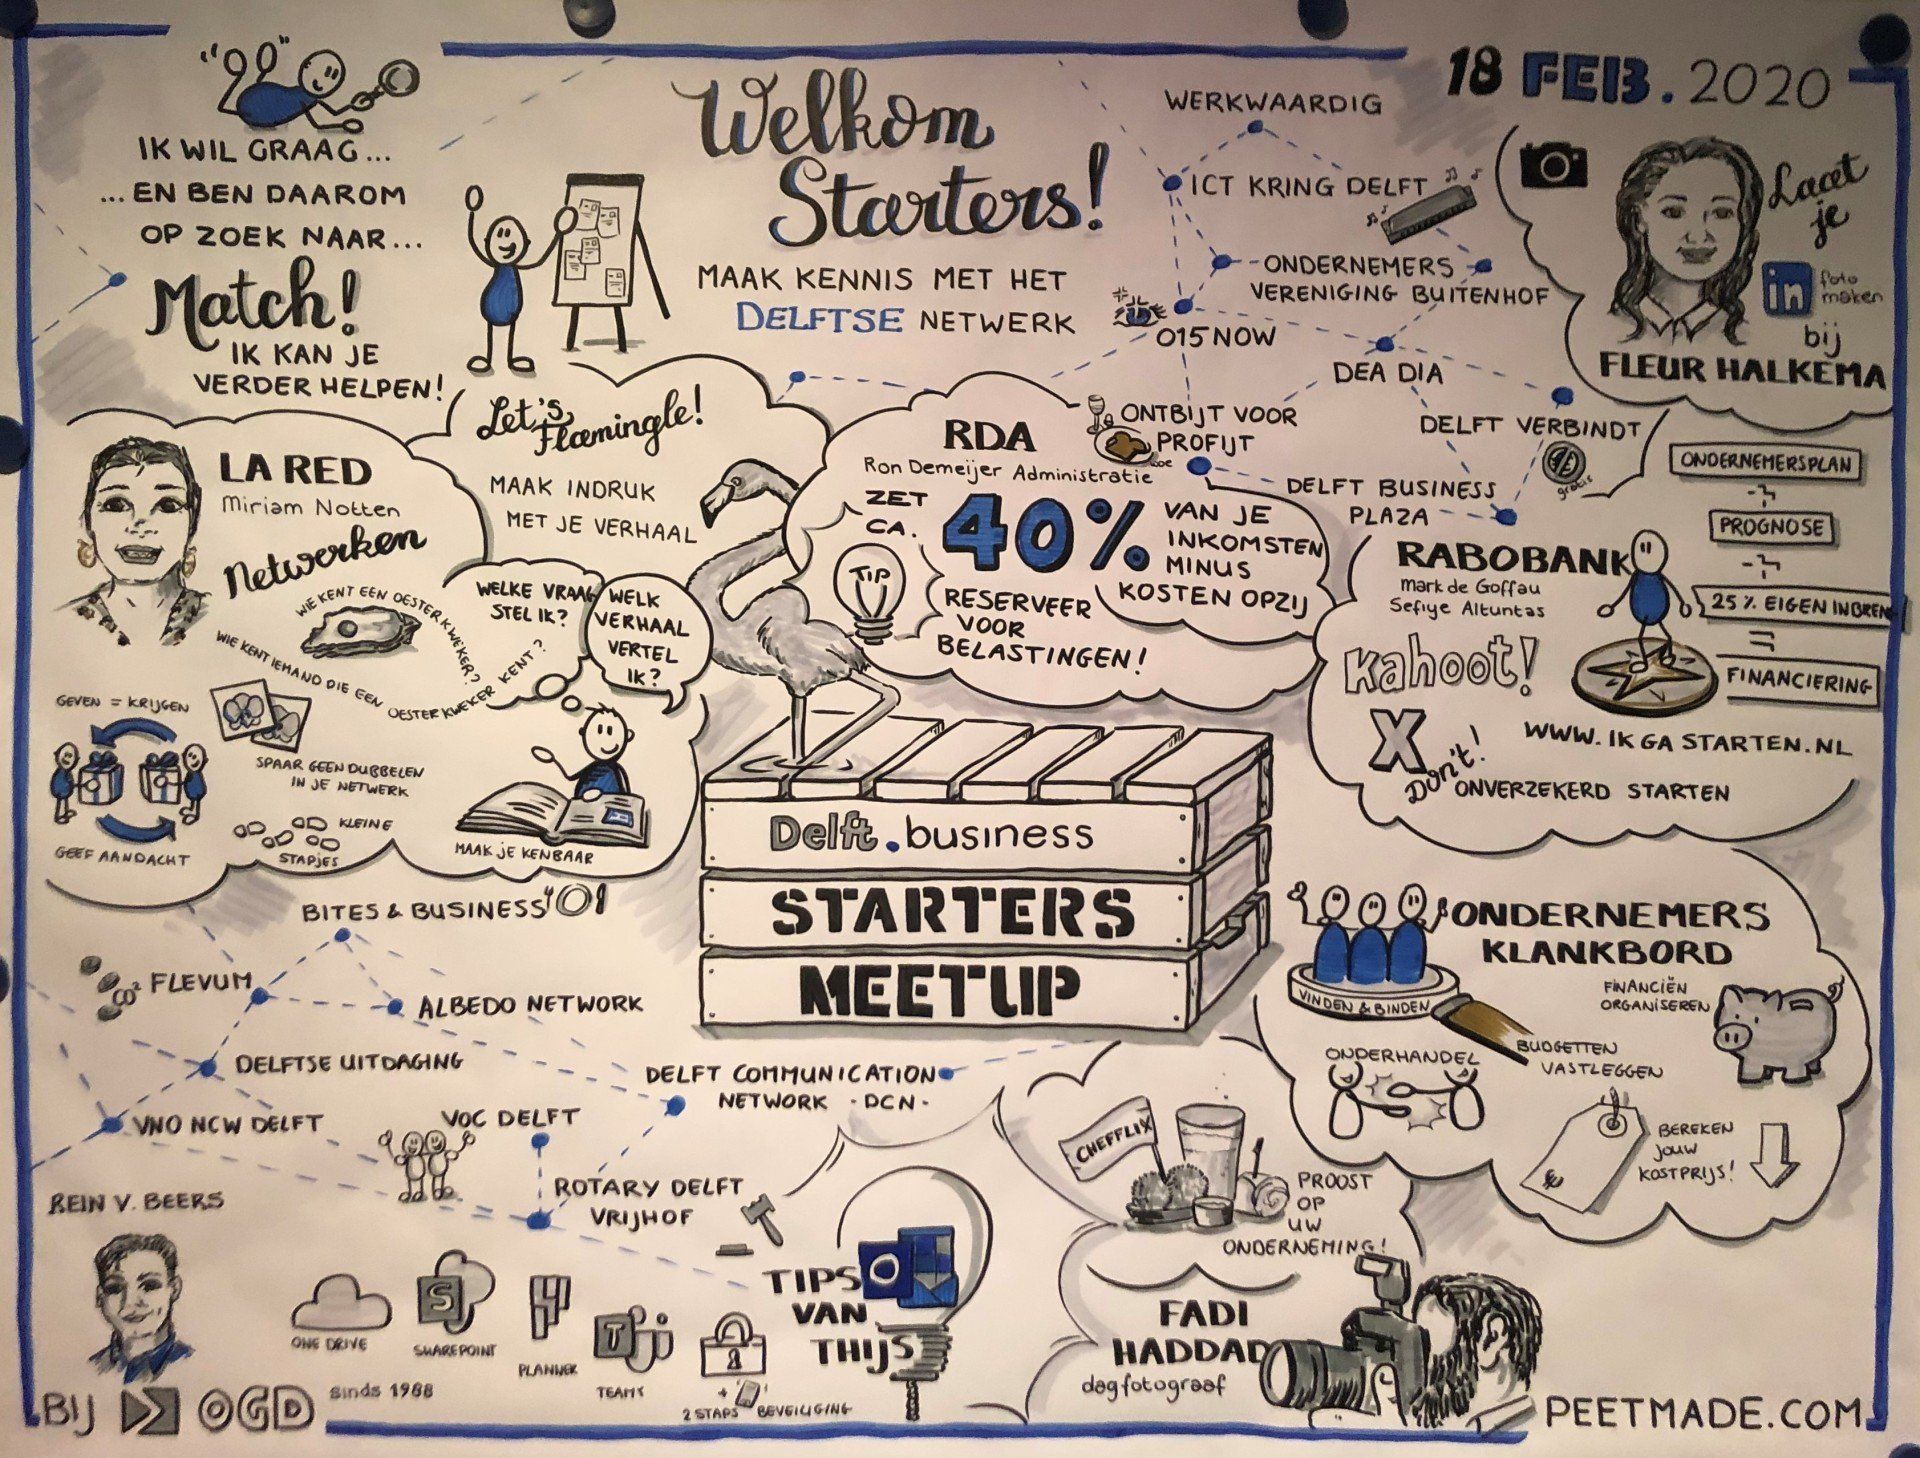 Welkom
Starters!
MAAK KENNIS MET HET
DELFTSE NETWERK
18 FEB. 2020
IK WIL GRAAG...
...EN BEN DAAROM
OP ZOEK NAAR...
Match!
IK KAN JE
VERDER HELPEN!
WERKWAARDIG
ICT KRING DELFT
ONDERNEMERS
VERENIGING BUITENHOF
015 NOW
DEA DIA
DELFT VERBINDT
gratis
ONTBIJT VOOR
PROFIJT
DELFT BUSINESS
PLAZA
Laat
je
in
foto
maken
bij
FLEUR HALKEMA
LA RED
Miriam Notten
Netwerken
WIE KENT EEN OESTERKWEKER?
WIE KENT IEMAND DIE EEN OESTERKWEKER KENT?
GEVEN = KRIJGEN
GEEF AANDACHT
SPAAR GEEN DUBBELEN
IN JE NETWERK
KLEINE
STAPJES
Let's
Flamingle!
MAAK INDRUK
MET JE VERHAAL
WELKE VRAAG
STEL IK?
WELK
VERHAAL
VERTEL
IK?
MAAK JE KENBAAR
RDA
Ron Demeijer Administratie
ZET
CA.
40%
VAN JE
INKOMSTEN
MINUS
KOSTEN OPZIJ
TIP
RESERVEER
VOOR
BELASTINGEN!
RABOBANK
Mark de Goffau
Sefiye Altuntas
Kahoot!
X
Don't!
ONVERZEKERD STARTEN
WWW.IKGASTARTEN.NL
ONDERNEMERSPLAN
PROGNOSE
25% EIGEN INBREN
=
FINANCIERING
Delft.business
STARTERS
MEETUP
BITES & BUSINESS
CO² FLEVUM
ALBEDO NETWORK
DELFTSE UITDAGING
VNO NCW DELFT
VOC DELFT
DELFT COMMUNICATION
NETWORK -DCN-
ROTARY DELFT
VRIJHOF
ONDERNEMERS
KLANKBORD
VINDEN & BINDEN
FINANCIËN
ORGANISEREN
ONDERHANDEL
BUDGETTEN
VASTLEGGEN
BEREKEN
JOUW
KOSTPRIJS!
€
REIN V. BEERS
BIJ OGD sinds 1988
ONE DRIVE
S
SHAREPOINT
PLANNER
T
TEAMS
+
2 STAPS BEVEILIGING
TIPS
VAN
THIJS
O
CHEFFLIX
PROOST
OP
UW
ONDERNEMING!
FADI
HADDAD
dagfotograaf
PEETMADE.COM